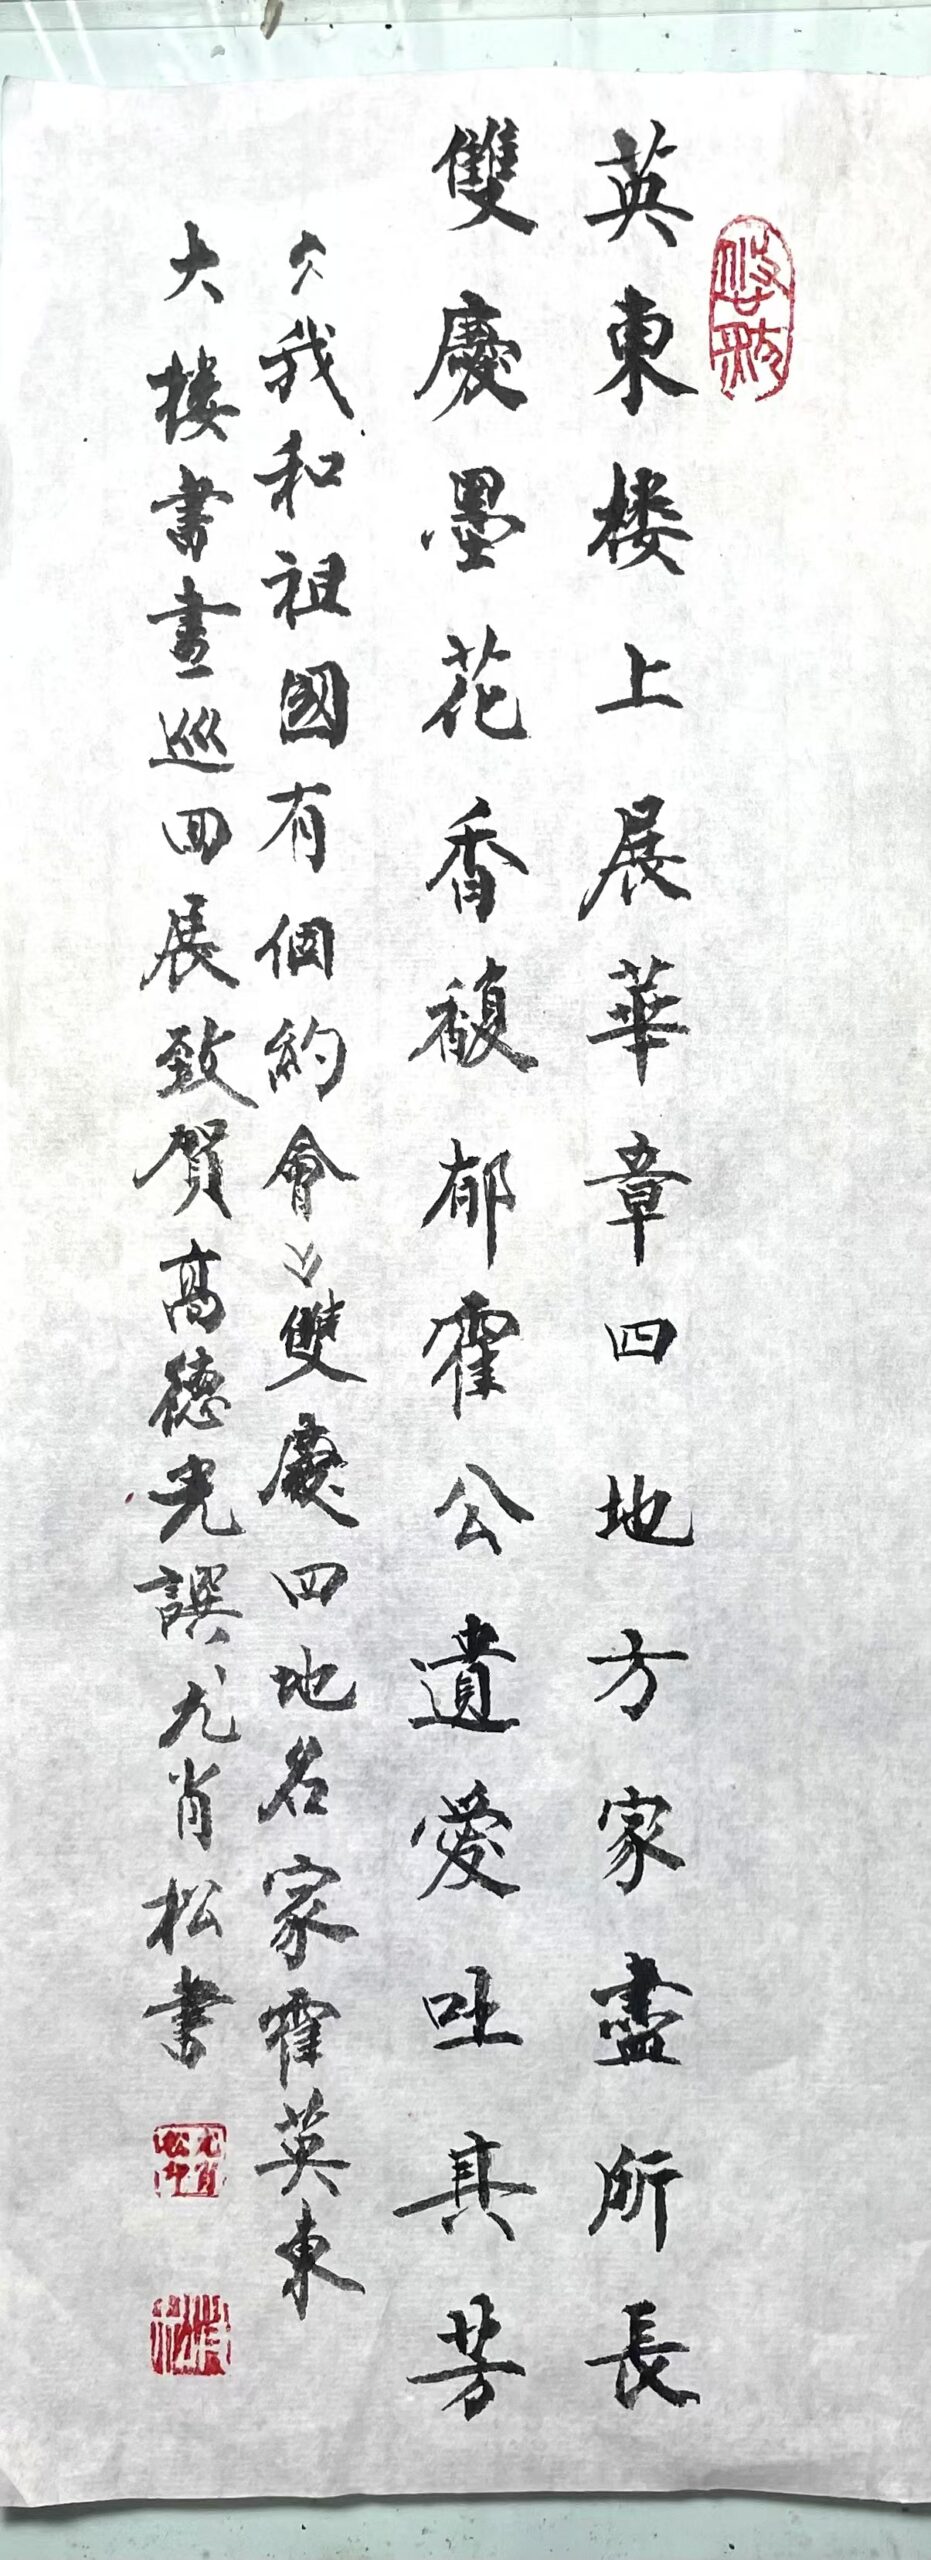 英東楼上展華章四地方家盡所長
雙慶墨花香馥郁霍公遺愛吐真芳
《我和祖國有個約會》雙慶四地名家霍英東
大楼書畫巡回展致賀高德光譔尤肖松書
尤肖松印